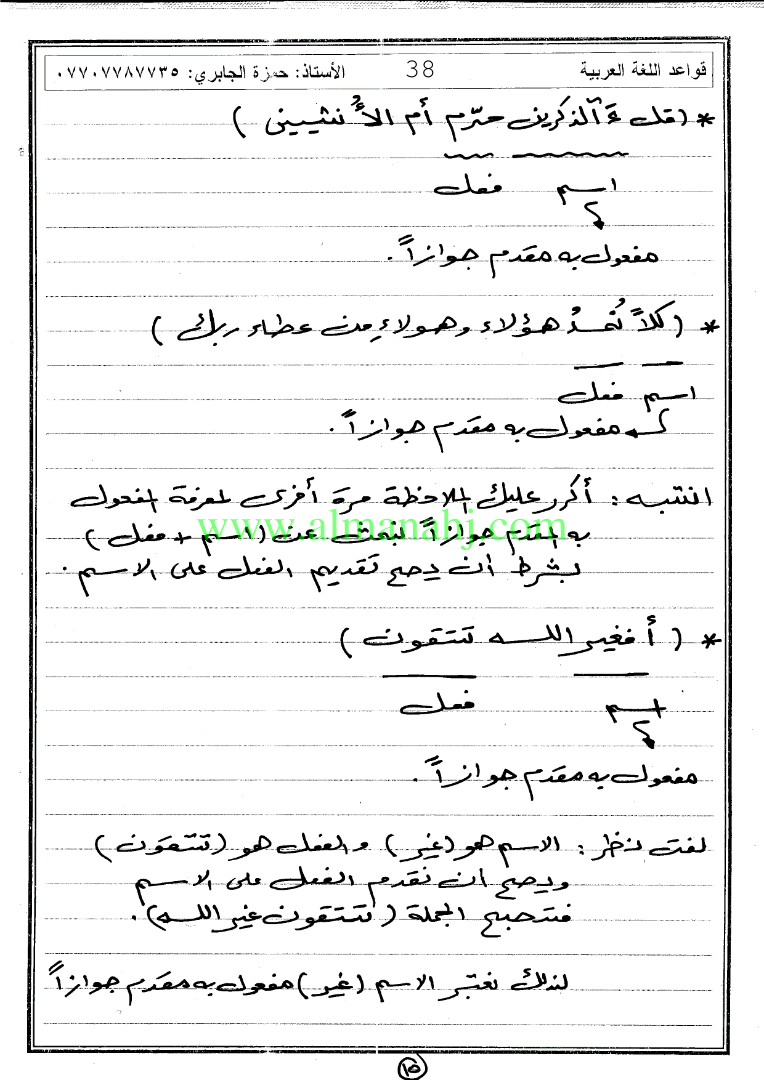 قواعد اللغة العربية 38 الأستاذ: حمزة الجابري: ٠٧٧٠٧٧٨٧٧٣٥
* (قل ءَآلذكرين حرّم أم الأُنثيين)
اسم فعل
مفعول به مقدم جوازاً.
* (كلاً نُمدُ هؤلاء وهولاءِ من عطاء ربك)
اسم فعل
مفعول به مقدم جوازاً.
انتبه: أكرر عليك الملاحظة مرة أخرى لمعرفة المفعول
به المقدم جوازاً نبحث عن (اسم + فعل)
بشرط أن يصح تقديم الفعل على الاسم.
www.almanahj.com
* (أفغير الله تتقون)
اسم فعل
مفعول به مقدم جوازاً.
لفت نظر: الاسم هو (غير) والفعل هو (تتقون)
ويصح ان نقدم الفعل على الاسم
فتصبح الجملة (تتقون غير الله).
لذلك نعتبر الاسم (غير) مفعول به مقدم جوازاً
١٥